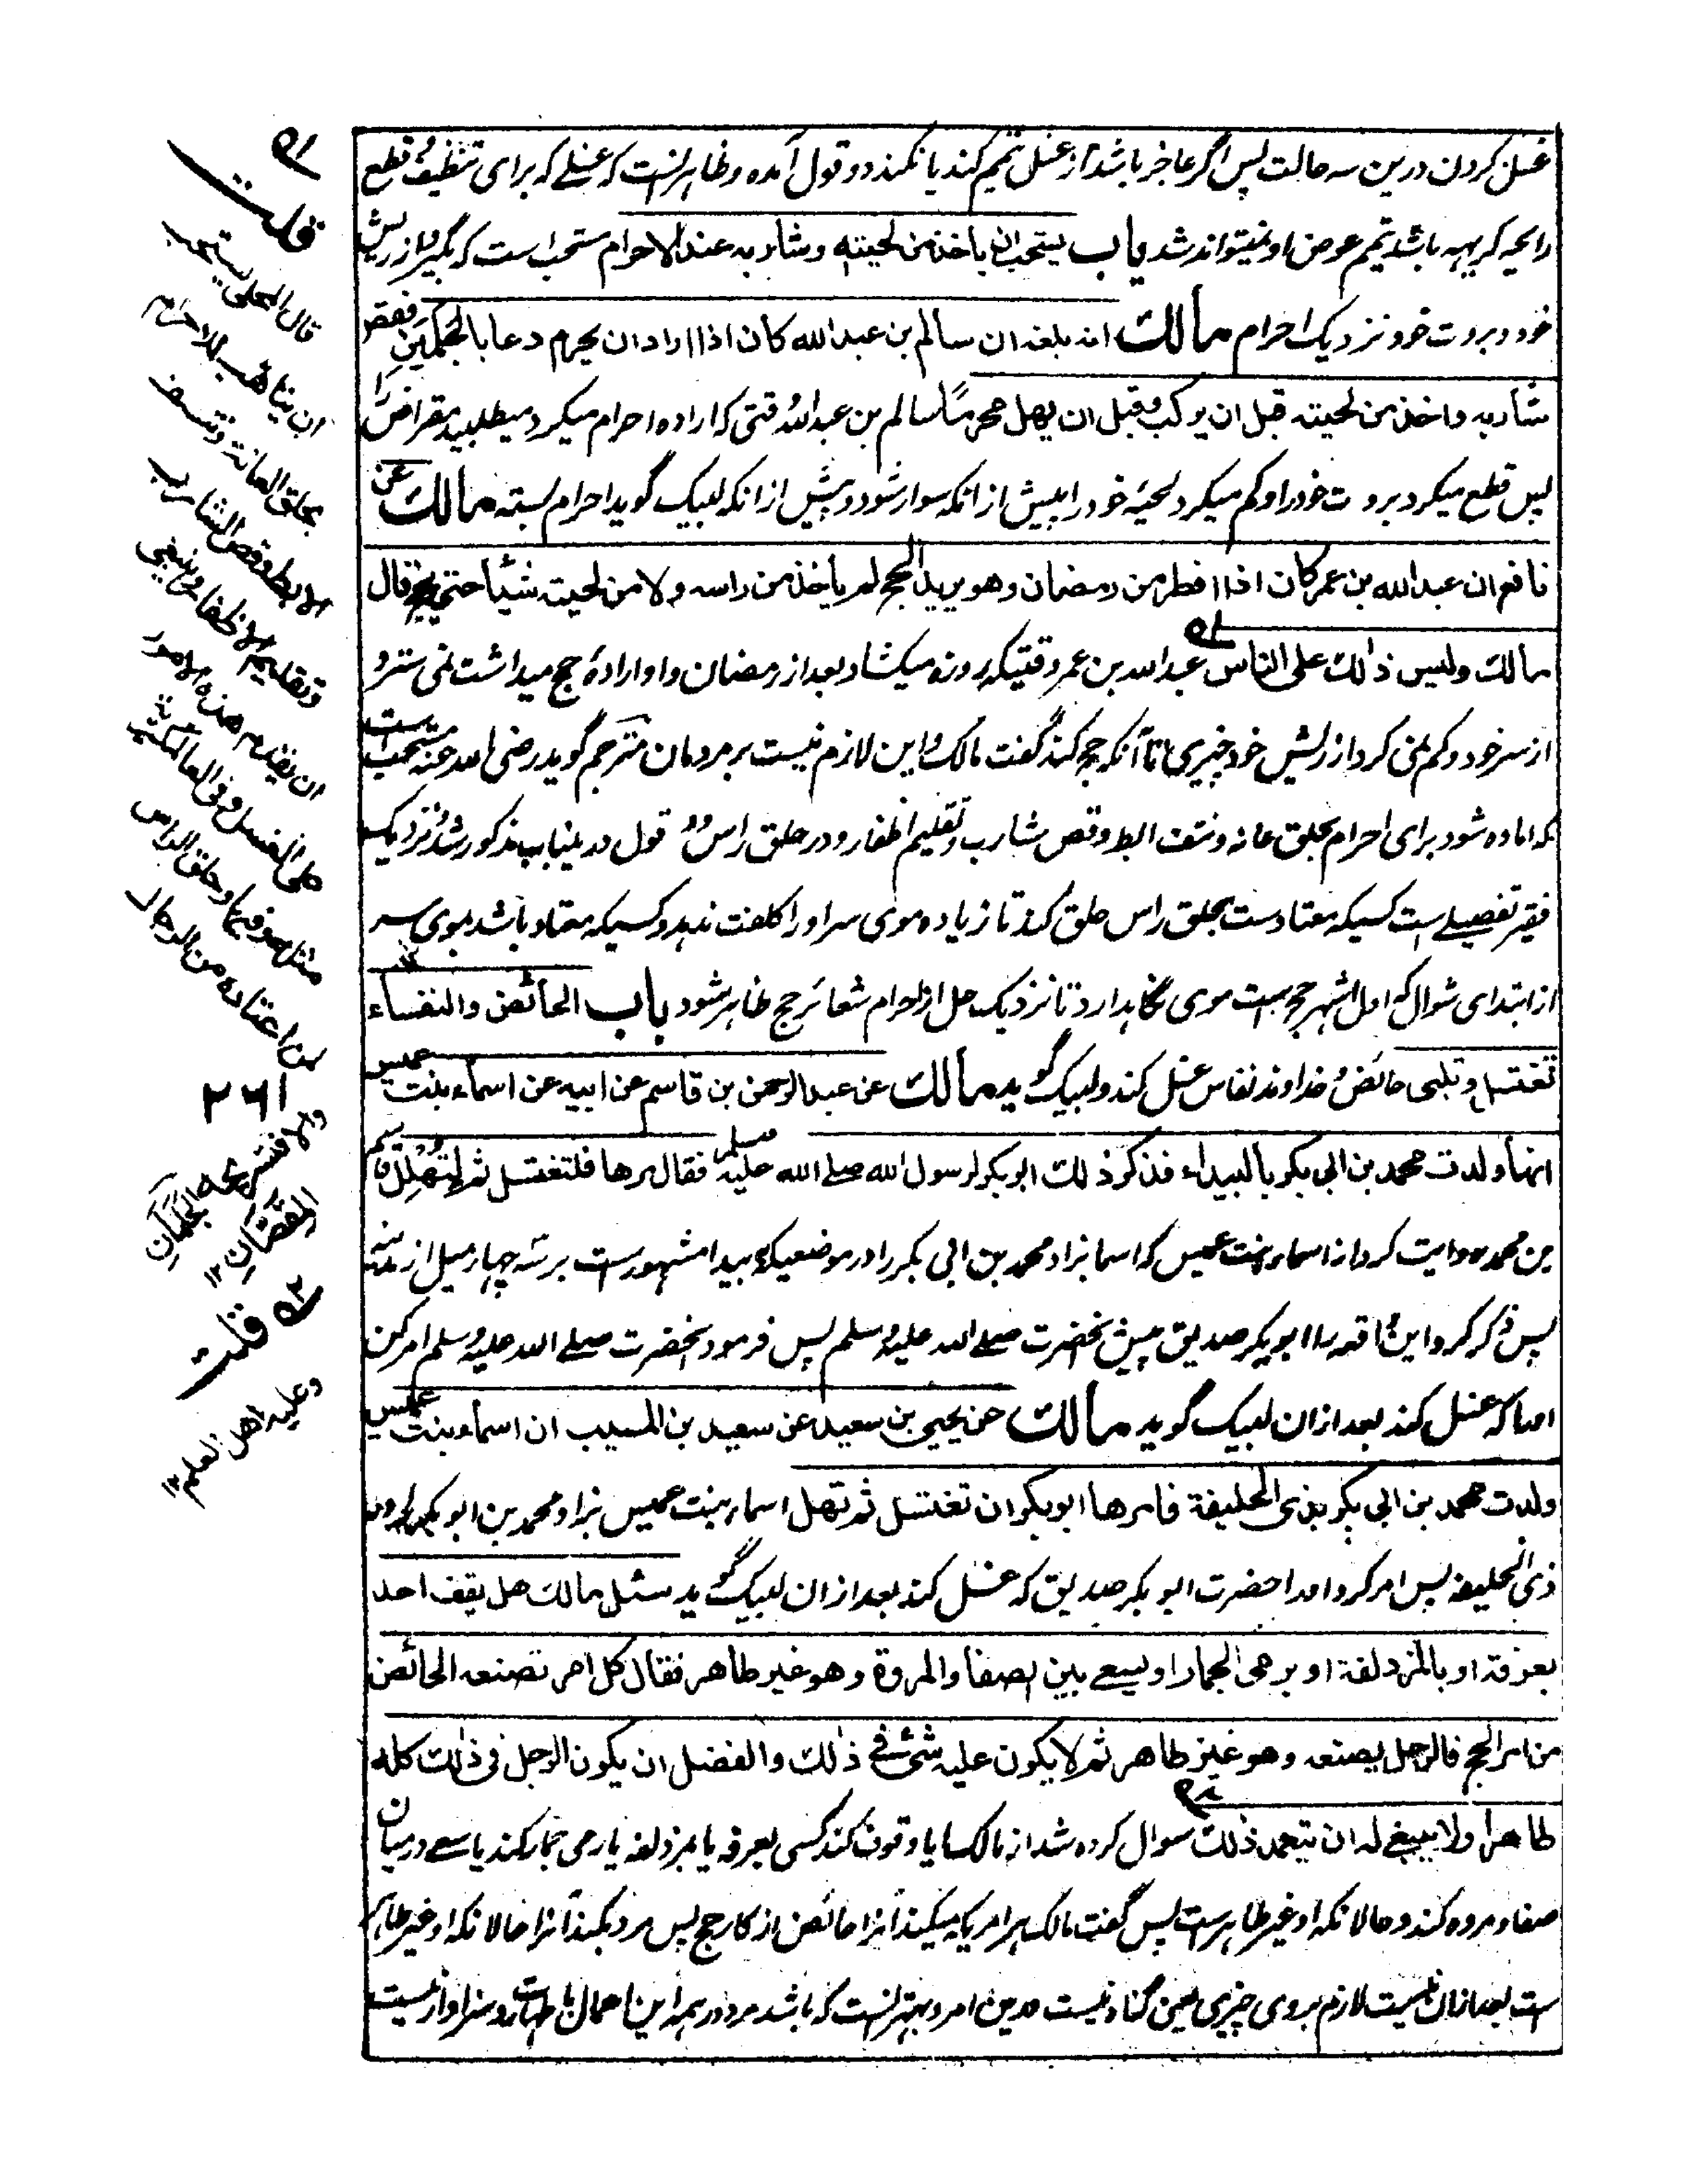 غسل کردن درین سه حالت پس اگر عاجز باشد از غسل تیمم کند یا نکند دو قول آمده و ظاهر آنست که غسلے که برای تنظیف و قطع
رایحه کریهه باشد تیمم عوض او نمیتواند شد باب یستحب ان یأخذ من لحیته وشاربه عند الاحرام مستحب است که بگیرد از ریش
خود و بروت خود نزدیک احرام مالک انه بلغه ان سالم بن عبد الله کان اذا اراد ان یحرم دعا بالجلمین فقص
شاربه واخذ من لحیته قبل ان یرکب وقبل ان یهل محرما سالم بن عبد الله وقتی که اراده احرام میکرد میطلبید مقراض را
پس قطع میکرد بروت خود را و کم میکرد لحیهٔ خود را پیش از انکه سوار شود و پیش از انکه لبیک گوید احرام بسته مالک عن
نافع ان عبد الله بن عمر کان اذا افطر من رمضان وهو یرید الحج لم یأخذ من راسه ولا من لحیته شیئا حتی یحج قال
مالک ولیس ذلک علی الناس عبد الله بن عمر وقتیکه روزه میکشاد بعد از رمضان و او ارادهٔ حج میداشت نمی سترد
از سر خود و کم نمی کرد از ریش خود چیزی تا آنکه حج کند گفت مالک و این لازم نیست بر مردمان مترجم گوید رضی الله عنه مستحب است
که اماده شود برای احرام بحلق عانه و نتف ابط و قص شارب و تقلیم اظفار و در حلق راس دو قول درینباب مذکور شد و نزدیک
فقیر تفصیلے است کسیکه معتادست بحلق راس حلق کند تا زیاده موی سر او را کلفت ندهد و کسیکه معتاد باشد بموی سر
از ابتدای شوال که اول اشهر حج ست موی نگاهدارد تا نزدیک حل از احرام شعائر حج ظاهر شود باب الحائض والنفساء
تغتسل وتلبی حائض و خداوند نفاس غسل کند و لبیک گوید مالک عن عبد الرحمن بن قاسم عن ابیه عن اسماء بنت عمیس
انها ولدت محمد بن ابی بکر بالبیداء فذکر ذلک ابو بکر لرسول الله صلے الله علیه وسلم فقال مرها فلتغتسل ثم لتهلل قاسم
بن محمد روایت کرد از اسماء بنت عمیس که اسما بزاد محمد بن ابی بکر را در موضعیکه ببیدا مشهورست بر سه چهار میل از مدینه
پس ذکر کرد این واقعه را ابوبکر صدیق پیش آنحضرت صلے الله علیه وسلم پس فرمود آنحضرت صلے الله علیه وسلم امر کن
اسما که غسل کند بعد ازان لبیک گوید مالک عن یحیی بن سعید عن سعید بن المسیب ان اسماء بنت عمیس
ولدت محمد بن ابی بکر بذی الحلیفة فامرها ابوبکر ان تغتسل ثم تهل اسماء بنت عمیس بزاد محمد بن ابو بکر را در
ذی الحلیفه پس امر کرد او را حضرت ابوبکر صدیق که غسل کند بعد ازان لبیک گوید سئل مالک هل یقف احد
بعرفة او بالمزدلفة او یرمی الجمار او یسعے بین الصفا والمروة وهو غیر طاهر فقال کل امر تصنعه الحائض
من امر الحج فالرجل یصنعه وهو غیر طاهر ثم لا یکون علیه شئ فی ذلک والفضل ان یکون الرجل فی ذلک کله
طاهرا ولا ینبغے له ان یتعمد ذلک سوال کرده شد از مالک آیا وقوف کند کسی بعرفه یا بمزدلفه یا رمی جمار کند یا سعے درمیان
صفا و مروه کند و حالانکه او غیر طاهرست پس گفت مالک هر امریکه میکند آنرا حائض از کار حج پس مرد بکند آنرا حالانکه او غیر طاهر
ست بعد ازان نیست لازم بروی چیزی یعنی گناه نیست درین امر و بهتر آنست که باشد مرد در همه این اعمال با طهارت و سزاوار نیست
قلت
قال المحلی یستحب
ان یتاهب للاحرام
بحلق العانة ونتف
الابط وقص الشارب
وتقلیم الاظفار وینبغی
ان یقدم هذه الامور
علی الغسل وفی العالمگیریة
مثله وفیها وحلق الراس
لمن اعتاده من الرجال
الجلمان
المقصان ۱۲
قلت
وعلیه اهل العلم ۱۲